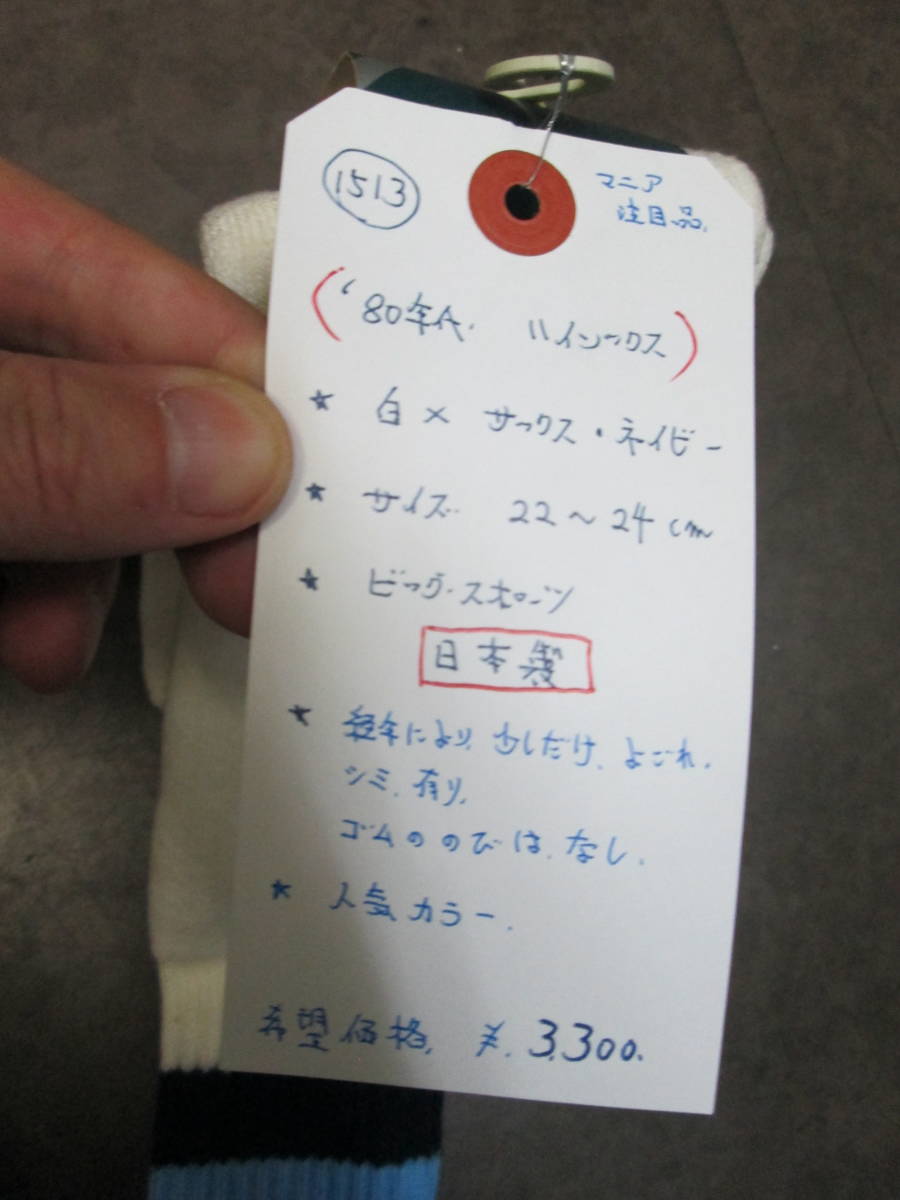 1513
マニア
注目品.
('80年代. ハイソックス)
★ 白 × サックス・ネイビー
★ サイズ 22～24cm
★ ビッグ・スポーツ
日本製
★ 経年により、少しだけ、よごれ.
シミ、有り、
ゴムののびは、なし.
★ 人気カラー.
希望価格, ¥. 3,300.